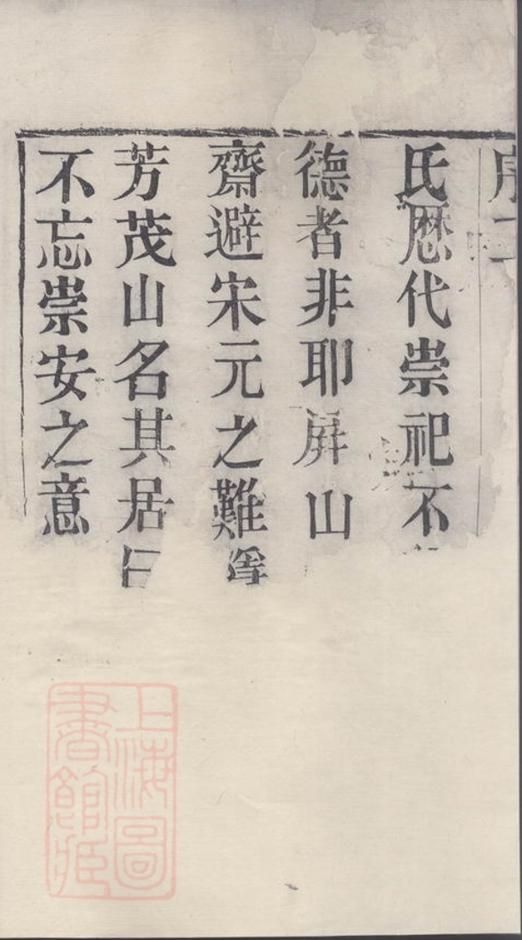 序
氏歷代崇祀不
德者非耶屏山
齋避宋元之難
芳茂山名其居曰
不忘崇安之意
上海圖
書館藏